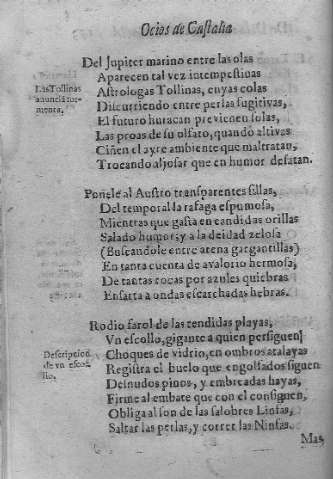 Ocios de Castalia
Del Jupiter marino entre las olas
Aparecen tal vez intempestiuas
Las Tollinas
anunciã tor-
menta.
Astrologas Tollinas, cuyas colas
Discurriendo entre perlas fugitiuas,
El futuro huracan preuienen solas,
Las proas de su olfato, quando altiuas
Ciñen el ayre ambiente que maltratan,
Trocando aljofar que en humor desatan.
Ponele al Austro transparentes sillas,
Del temporal la rafaga espumosa,
Mientras que gasta en candidas orillas
Salado humor; y a la deidad zelosa
(Buscandole entre arena gargantillas)
En tanta cuenta de avalorio hermosa,
De tantas rocas por azules quiebras
Ensarta a ondas escarchadas hebras.
Rodio farol de las tendidas playas,
Vn escollo, gigante a quien persiguen
Descripcion
de vn esco-
llo.
Choques de vidrio, en ombros atalayas
Registra el buelo que engolfados siguen
Desnudos pinos, y embreadas hayas,
Firme al embate que con el consiguen,
Obliga al son de las salobres Linfas,
Saltar las perlas, y correr las Ninfas.
Mas